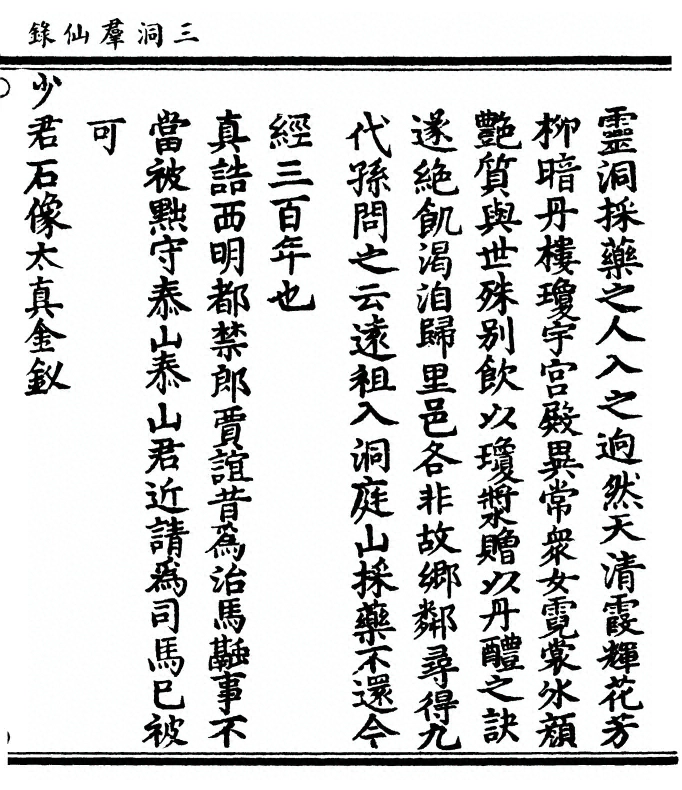 三洞羣仙錄
靈洞採藥之人入之逈然天清霞輝花芳
柳暗丹樓瓊宇宮殿異常衆女霓裳冰顔
艷質與世殊别飲以瓊漿贈以丹醴之訣
遂絶飢渴洎歸里邑各非故鄉鄰尋得九
代孫問之云遠祖入洞庭山採藥不還今
經三百年也
真誥西明都禁郎賈誼昔爲治馬融事不
當被黜守泰山泰山君近請爲司馬已被
可
少君石像太真金釵